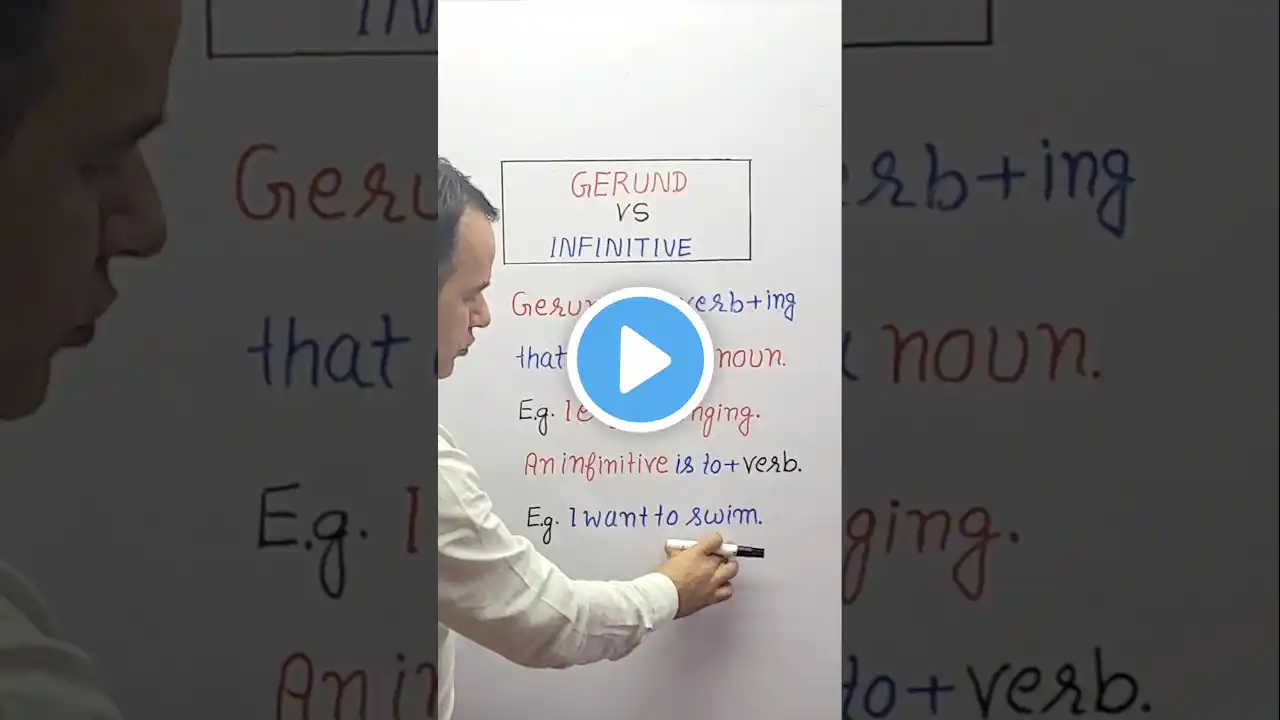 GERUND
VS
INFINITIVE
Gerund verb+ing
that noun.
E.g. I
An infinitive is to+verb.
E.g. I want to swim.